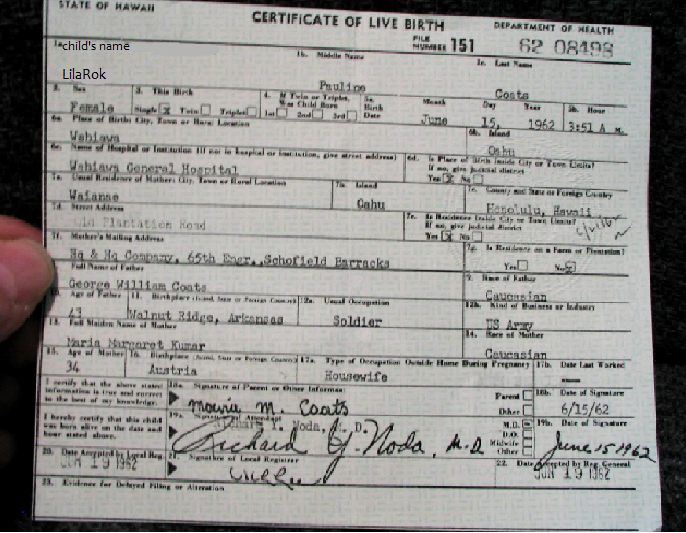 STATE OF HAWAII
CERTIFICATE OF LIVE BIRTH
DEPARTMENT OF HEALTH
FILE NUMBER 151 62 08498
1a child's name
1b. Middle Name
1c. Last Name
LilaRok
Pauline
Coats
2. Sex 3. This Birth 4. If Twin or Triplet, Was Child Born 5a. Birth Date Month Day Year 5b. Hour
Female Single Twin Triplet 1st 2nd 3rd June 15, 1962 3:51 A M.
6a. Place of Birth: City, Town or Rural Location 6b. Island
Wahiawa Oahu
6c. Name of Hospital or Institution (If not in hospital or institution, give street address) 6d. Is Place of Birth Inside City or Town Limits? If no, give judicial district
Wahiawa General Hospital Yes No
7a. Usual Residence of Mother: City, Town or Rural Location 7b. Island 7c. County and State or Foreign Country
Waianae Oahu Honolulu, Hawaii
7d. Street Address 7e. Is Residence Inside City or Town Limits? If no, give judicial district
Old Plantation Road Yes No
7f. Mother's Mailing Address 7g. Is Residence on a Farm or Plantation?
Hq & Hq Company, 65th Engr., Schofield Barracks Yes No
Full Name of Father 9. Race of Father
George William Coats Caucasian
Age of Father 11. Birthplace (Island, State or Foreign Country) 12a. Usual Occupation 12b. Kind of Business or Industry
23 Walnut Ridge, Arkansas Soldier US Army
13. Full Maiden Name of Mother 14. Race of Mother
Maria Margaret Kumar Caucasian
15. Age of Mother 16. Birthplace (Island, State or Foreign Country) 17a. Type of Occupation Outside Home During Pregnancy 17b. Date Last Worked
34 Austria Housewife
I certify that the above stated information is true and correct to the best of my knowledge. 18a. Signature of Parent or Other Informant Parent Other 18b. Date of Signature
M. Coats 6/15/62
I hereby certify that this child was born alive on the date and hour stated above. 19a. Signature of Attendant M.D. D.O. Midwife Other 19b. Date of Signature
Richard Y. Noda, M.D. June 15 1962
20. Date Accepted by Local Reg. 21. Signature of Local Registrar 22. Date Accepted by Reg. General
JUN 19 1962 JUN 19 1962
23. Evidence for Delayed Filing or Alteration